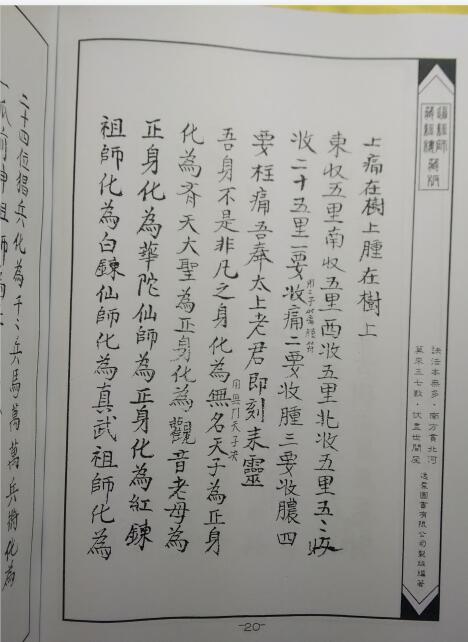 訣法本無多，南方會北河
算來三七數，伏盡世間魔
圖書有限公司製版編著
上痛在樹上腫在樹上
東收五里南收五里西收五里北收五里五〻收
收二十五里一要收痛二要收腫三要收膿四
要柱痛吾奉太上老君即刻耒靈
吾身不是非凡之身化為無名天子為正身
化為齐天大聖為正身化為觀音老母為
正身化為華陀仙師為正身化為紅鍊
祖師化為白鍊仙師化為真武祖師化為
-20-
二十四位猖兵化為千〻兵馬萬萬兵將化為